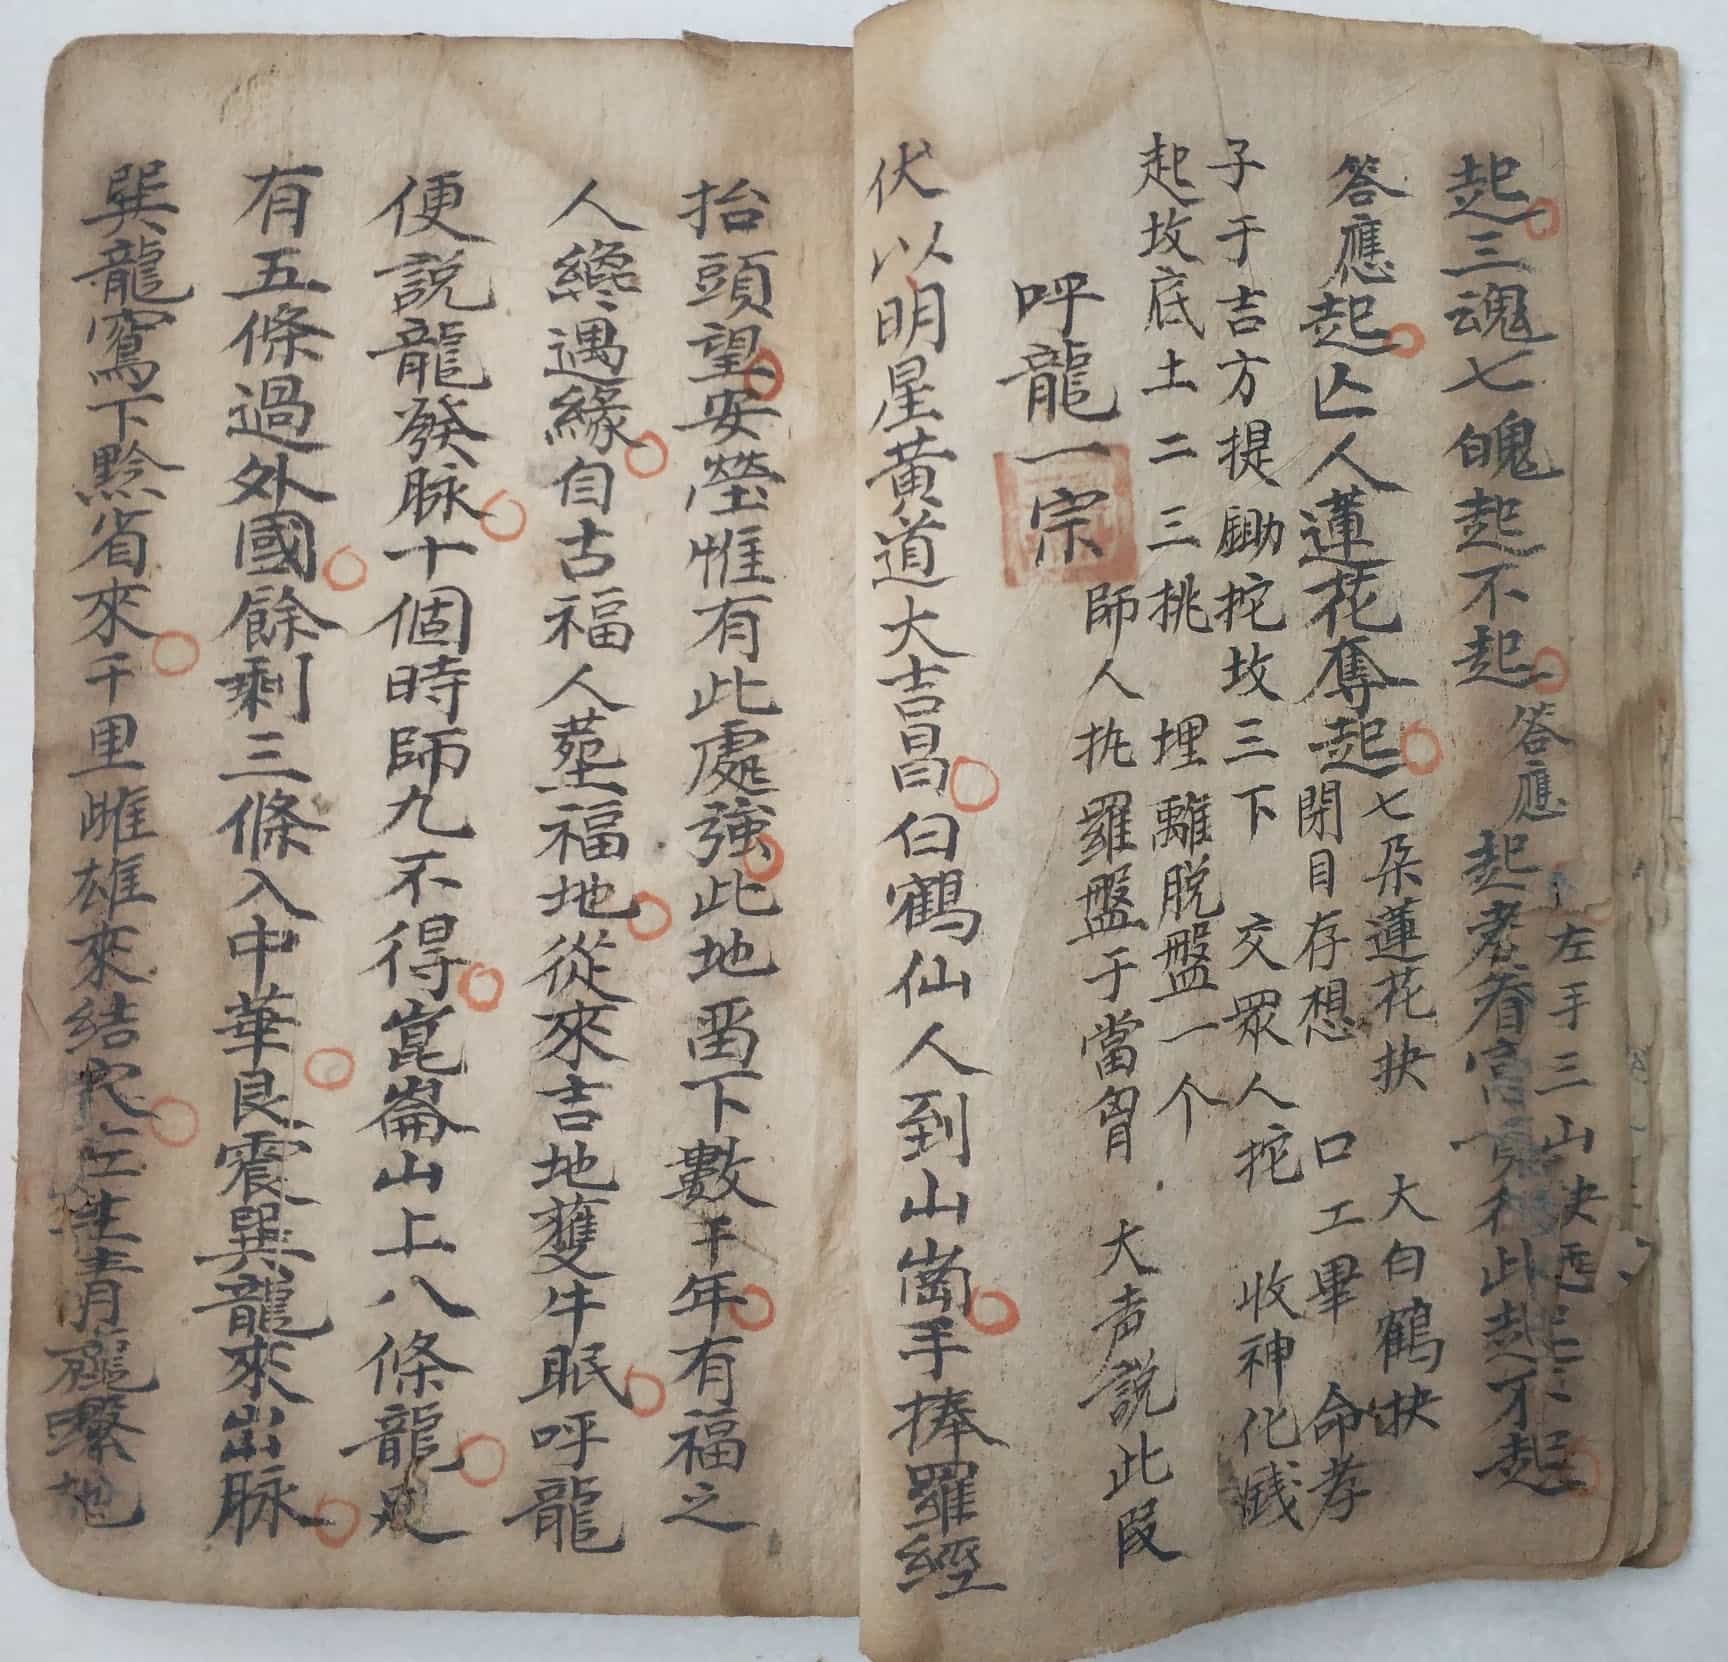 起三魂七魄起不起
答應
左手三山決
起老眷富貴利此起不起
答應起亾人蓮花奪起
七朵蓮花抉 大白鶴抉
閉目存想 口工畢 命孝
子于吉方提鋤挖坟三下 交眾人挖 收神化賤
起坟底土二三挑 埋離脱盤一个
呼龍一宗
師人执羅盤于當胷 大声說此段
伏以明星黃道大吉昌白鶴仙人到山崗手捧羅經
抬頭望安塋惟有此處強此地畄下數千年有福之
人纔遇緣自古福人塟福地從來吉地雙牛眠呼龍
便說龍發脉十個時師九不得崑崙山上八條龍
有五條過外國餘剩三條入中華艮震巽龍來出脉
巽龍窵下黔省來千里雌雄來結穴